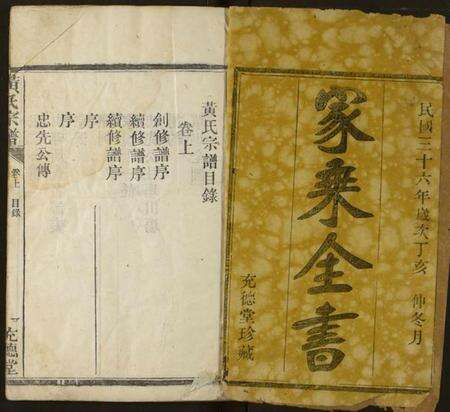 民國三十六年歲次丁亥 仲冬月
家乘全書
充德堂珍藏
黃氏宗譜目錄
卷上
創修譜序
續修譜序
續修譜序
序
序
忠先公傳
黃氏宗譜
卷上 目錄
一
充德堂